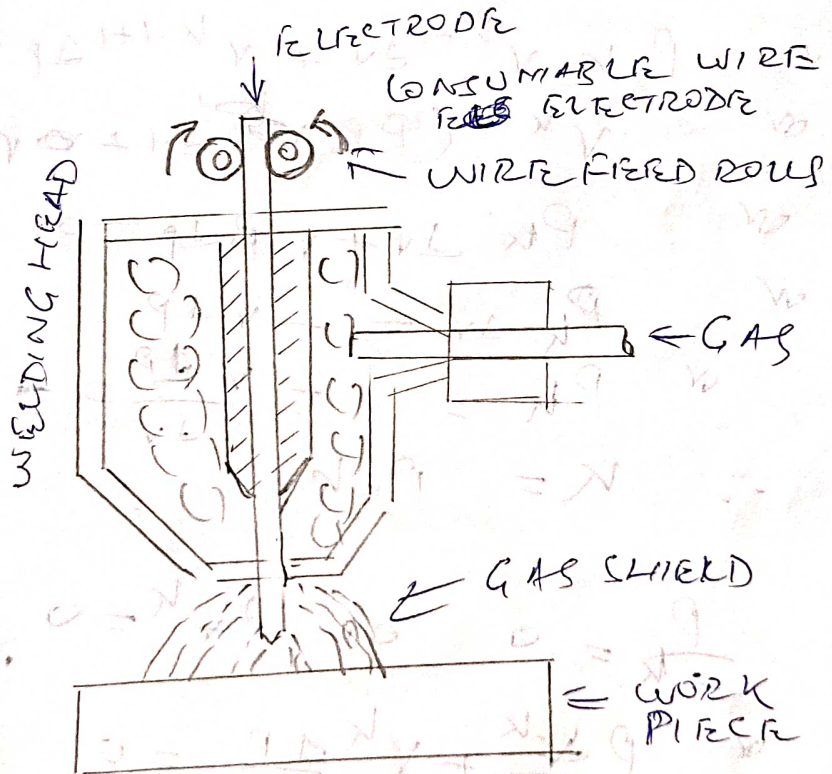 ELECTRODE
CONSUMABLE WIRE
ELECTRODE
WIRE FEED ROLLS
WELDING HEAD
GAS
GAS SHIELD
WORK
PIECE